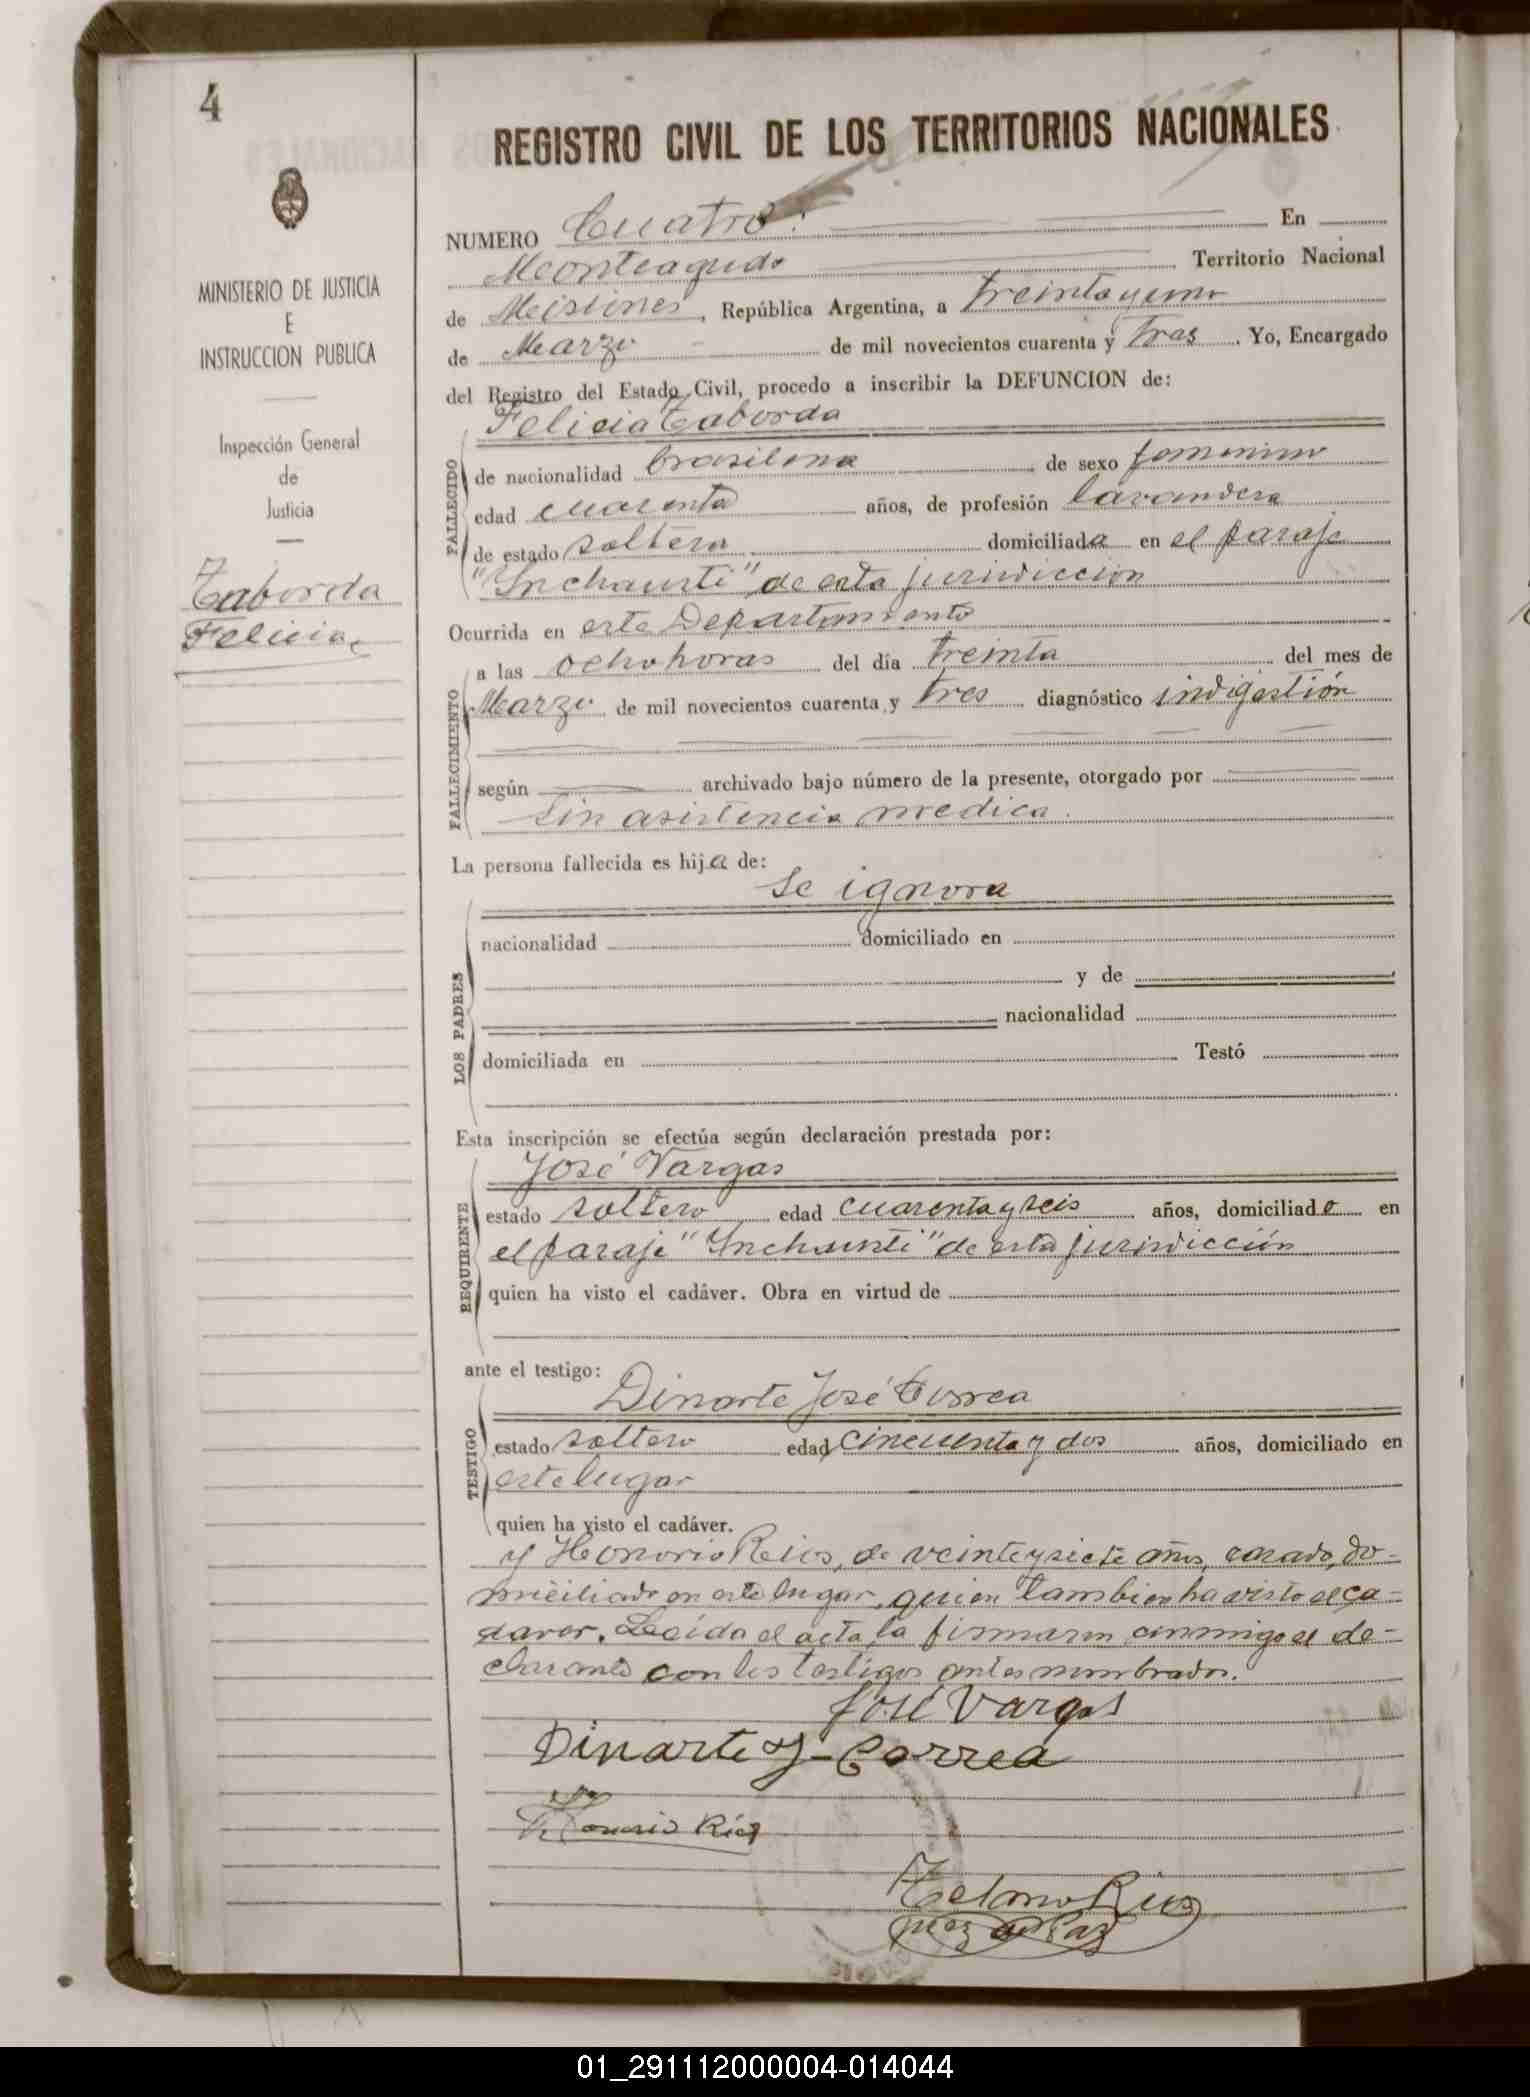 4
MINISTERIO DE JUSTICIA
E
INSTRUCCION PUBLICA
Inspección General
de
Justicia
Taborda
Felicia
REGISTRO CIVIL DE LOS TERRITORIOS NACIONALES
NUMERO Cuatro: En
Monteagudo Territorio Nacional
de Misiones, República Argentina, a treinta y uno
de Marzo de mil novecientos cuarenta y tres. Yo, Encargado
del Registro del Estado Civil, procedo a inscribir la DEFUNCION de:
Felicia Taborda
FALLECIDO
de nacionalidad brasilena de sexo femenino
edad cuarenta años, de profesión lavandera
de estado soltera domiciliada en el paraje
"Inchausti" de esta jurisdiccion
Ocurrida en este Departamento
FALLECIMIENTO
a las ocho horas del día treinta del mes de
Marzo de mil novecientos cuarenta y tres diagnóstico indigestión
según archivado bajo número de la presente, otorgado por
Sin asistencia medica.
La persona fallecida es hija de:
Se ignora
LOS PADRES
nacionalidad domiciliado en
y de
nacionalidad
domiciliada en Testó
Esta inscripción se efectúa según declaración prestada por:
José Vargas
REQUIRENTE
estado soltero edad cuarenta y seis años, domiciliado en
el paraje "Inchausti" de esta jurisdicción
quien ha visto el cadáver. Obra en virtud de
ante el testigo:
Dinarte José Correa
TESTIGO
estado soltero edad cincuenta y dos años, domiciliado en
este lugar
quien ha visto el cadáver.
y Honorio Rios, de veinte y siete años, casado, do-
miciliado en este lugar, quien tambien ha visto el ca-
daver. Leeida el acta, la firmaron conmigo el de-
clarante con los testigos antes nombrados.
José Vargas
Dinarte J- Correa
Honorio Ríos
Telmo Rios
Juez de Paz
01_291112000004-014044